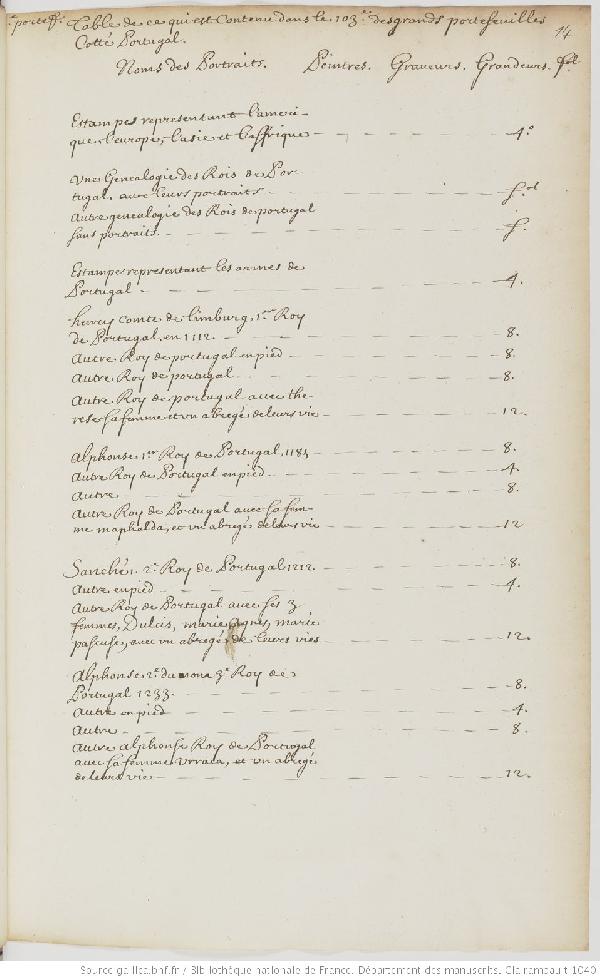 porteff. Table de ce qui est Contenu dans le 103e. des grands portefeuilles
Cotté Portugal.
14
Noms des Portraits. Peintres. Graveurs. Grandeurs. fol.
Estampes representant l'ameri-
que, l'europe, l'asie et l'affrique — 4.o
une Genealogie des Rois de Por-
tugal, avec leurs portraits — f.ol
autre genealogie des Rois de portugal
sans portraits. — f.
Estampes representant les armes de
Portugal — 4.
henry comte de limburg, 1er Roy
de Portugal, en 1112. — 8.
autre Roy de portugal en pied — 8.
autre Roy de portugal — 8.
autre Roy de portugal avec the-
rese sa femme et un abregé de leurs vie — 12.
alphonse 1er Roy de Portugal, 1184 — 8.
autre Roy de Portugal en pied — 4.
autre — 8.
autre Roy de Portugal avec sa fem-
me maphalda, et un abregé de leurs vie — 12
Sanche, 2e Roy de Portugal 1212. — 8.
autre en pied — 4.
autre Roy de Portugal avec ses 3
femmes, Dulcis, marie agnes, marie
, avec un abregé de leurs vies — 12.
alphonse 2e. du nom 3e Roy de
Portugal 1233. — 8.
autre en pied — 4.
autre — 8.
autre alphonse Roy de Portugal
avec sa femme urraca, et un abregé
de leurs vie — 12.
Source gallica.bnf.fr / Bibliothèque nationale de France. Département des manuscrits. Clairambault 1040